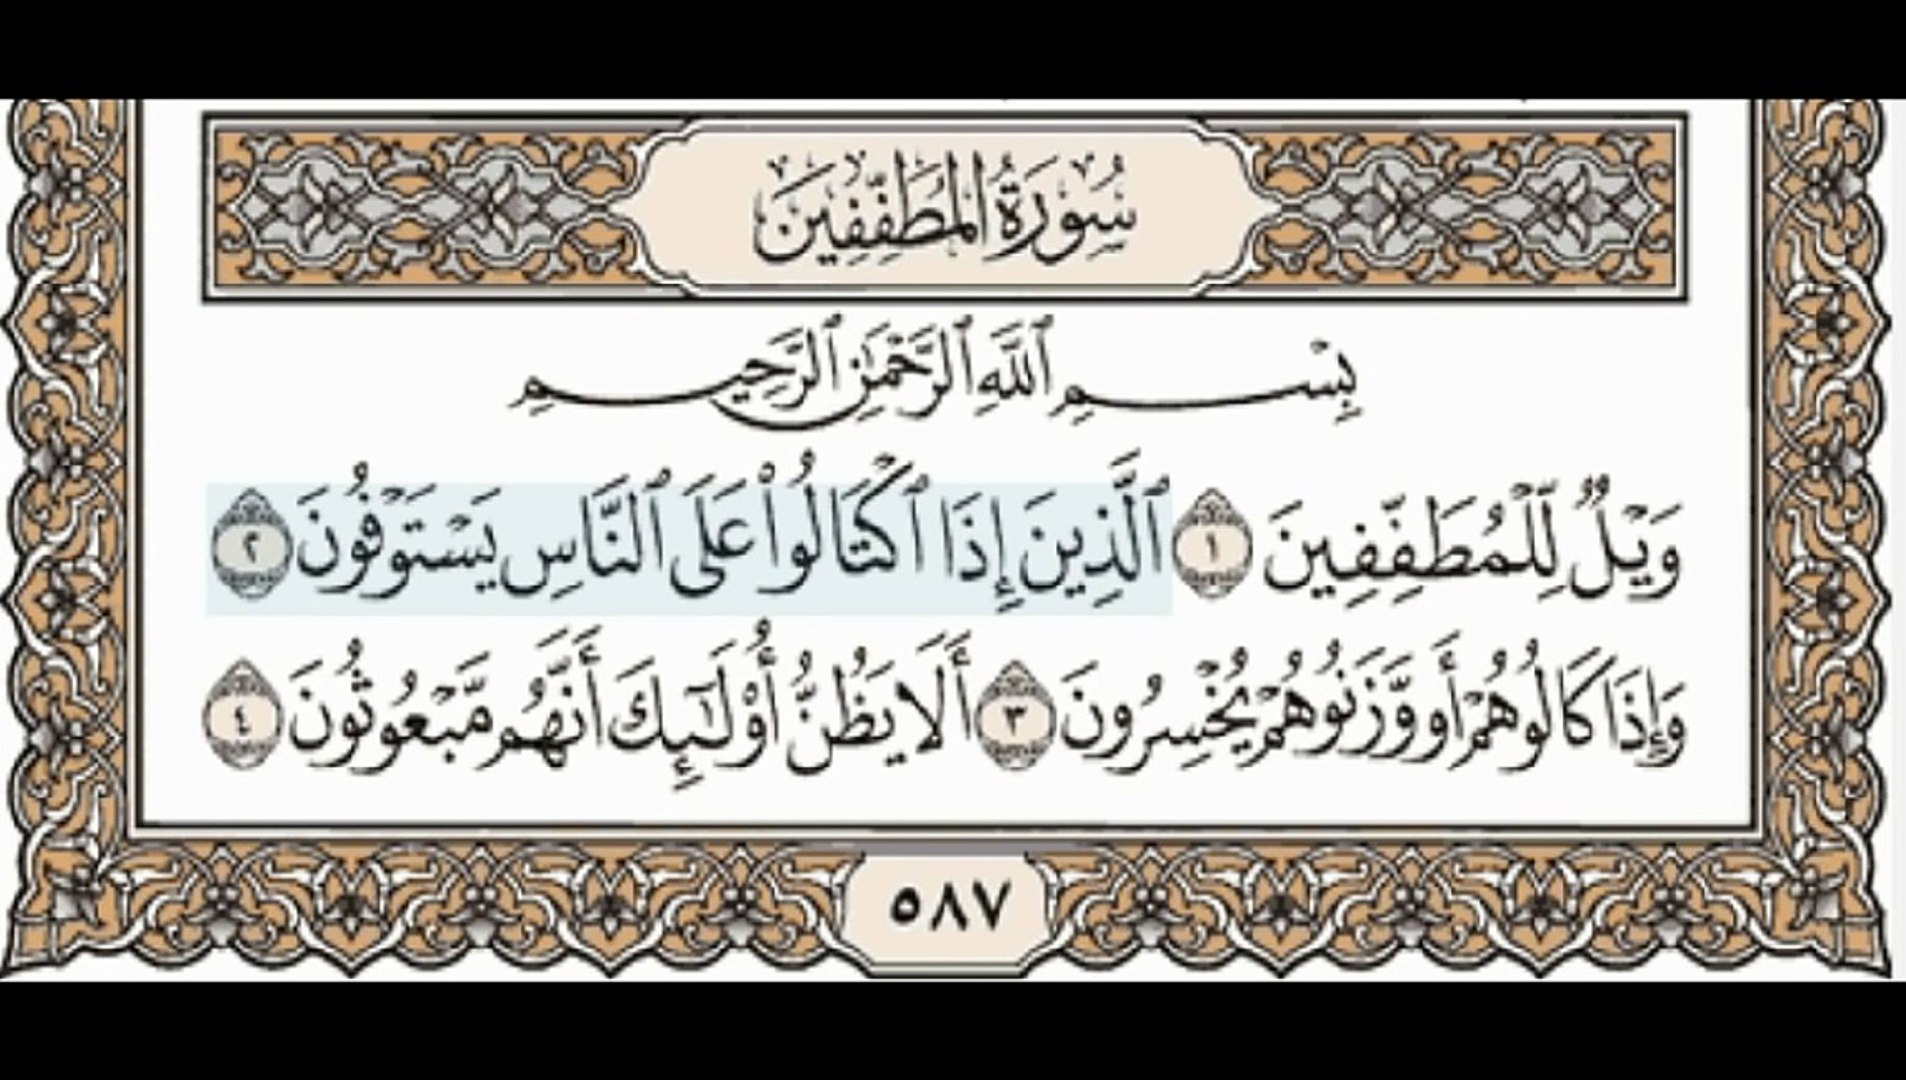 سُورَةُ الْمُطَفِّفِينَ
بِسْمِ ٱللَّهِ ٱلرَّحْمَٰنِ ٱلرَّحِيمِ
وَيْلٌ لِّلْمُطَفِّفِينَ ١ ٱلَّذِينَ إِذَا ٱكْتَالُوا۟ عَلَى ٱلنَّاسِ يَسْتَوْفُونَ ٢
وَإِذَا كَالُوهُمْ أَو وَّزَنُوهُمْ يُخْسِرُونَ ٣ أَلَا يَظُنُّ أُو۟لَٰٓئِكَ أَنَّهُم مَّبْعُوثُونَ ٤
٥٨٧